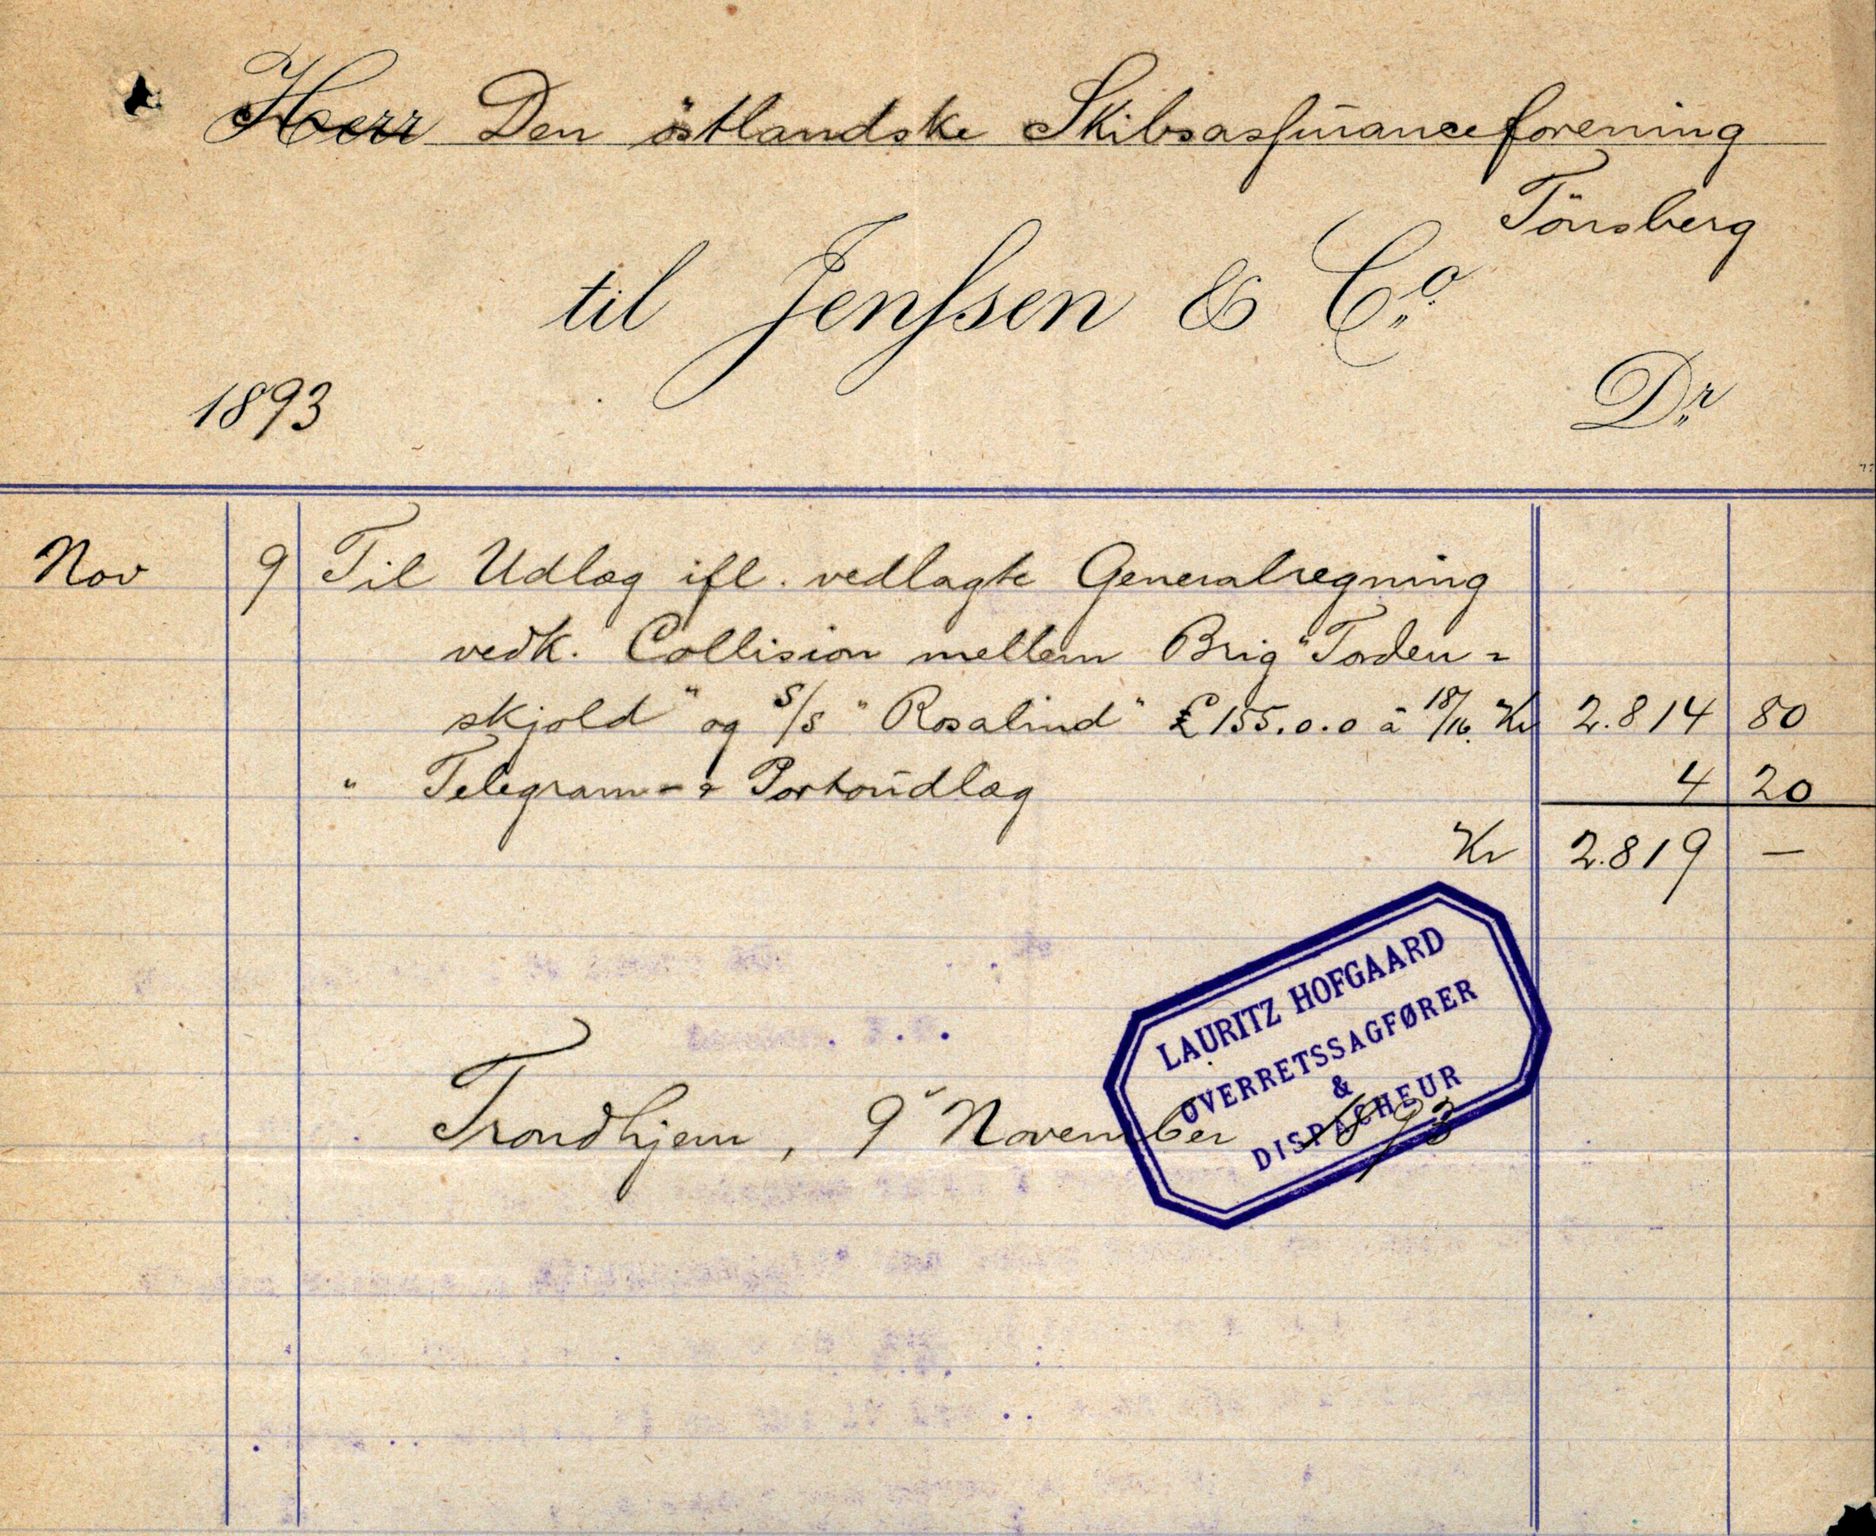 Herr Den östlandske Skibsassuranceforening
Tönsberg
til Jenssen & Co.
1893 Dr
Nov 9 Til Udlæg ifl. vedlagte Generalregning
vedk. Collision mellem Brig "Torden-
skjold" og S/S "Rosalind" £155.0.0 à 18/16 Kr 2.814 80
" Telegram- & Portoudlæg 4 20
Kr 2.819 —
LAURITZ HOFGAARD
OVERRETSSAGFØRER
&
DISPACHEUR
Trondhjem, 9 November 1893